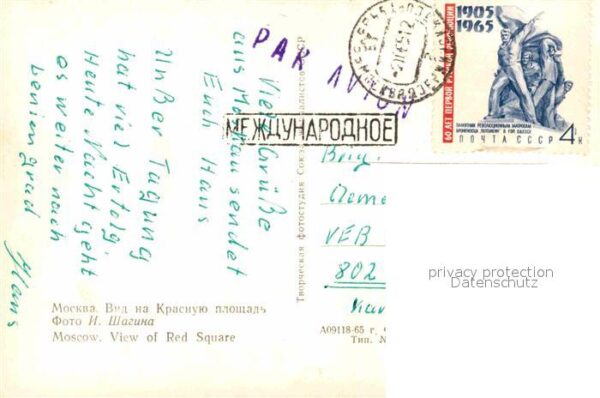 Viele Grüße
aus Moskau sendet
Euch Hans
Unßer Tagung
hat viel Erfolg.
Heute Nacht geht
es weiter nach
Leningrad
Hans
PAR AVION
МЕЖДУНАРОДНОЕ
1905
1965
60 ЛЕТ ПЕРВОЙ РУССКОЙ РЕВОЛЮЦИИ
ПАМЯТНИК РЕВОЛЮЦИОННЫМ МАТРОСАМ
БРОНЕНОСЦА „ПОТЕМКИН“ В ГОР. ОДЕССЕ
ПОЧТА СССР 4 К
Brig.
VEB
802
privacy protection
Datenschutz
Творческая фотостудия Союза
Москва. Вид на Красную площадь
Фото И. Шагина
Moscow. View of Red Square
А09118-65 г.
Тип. №